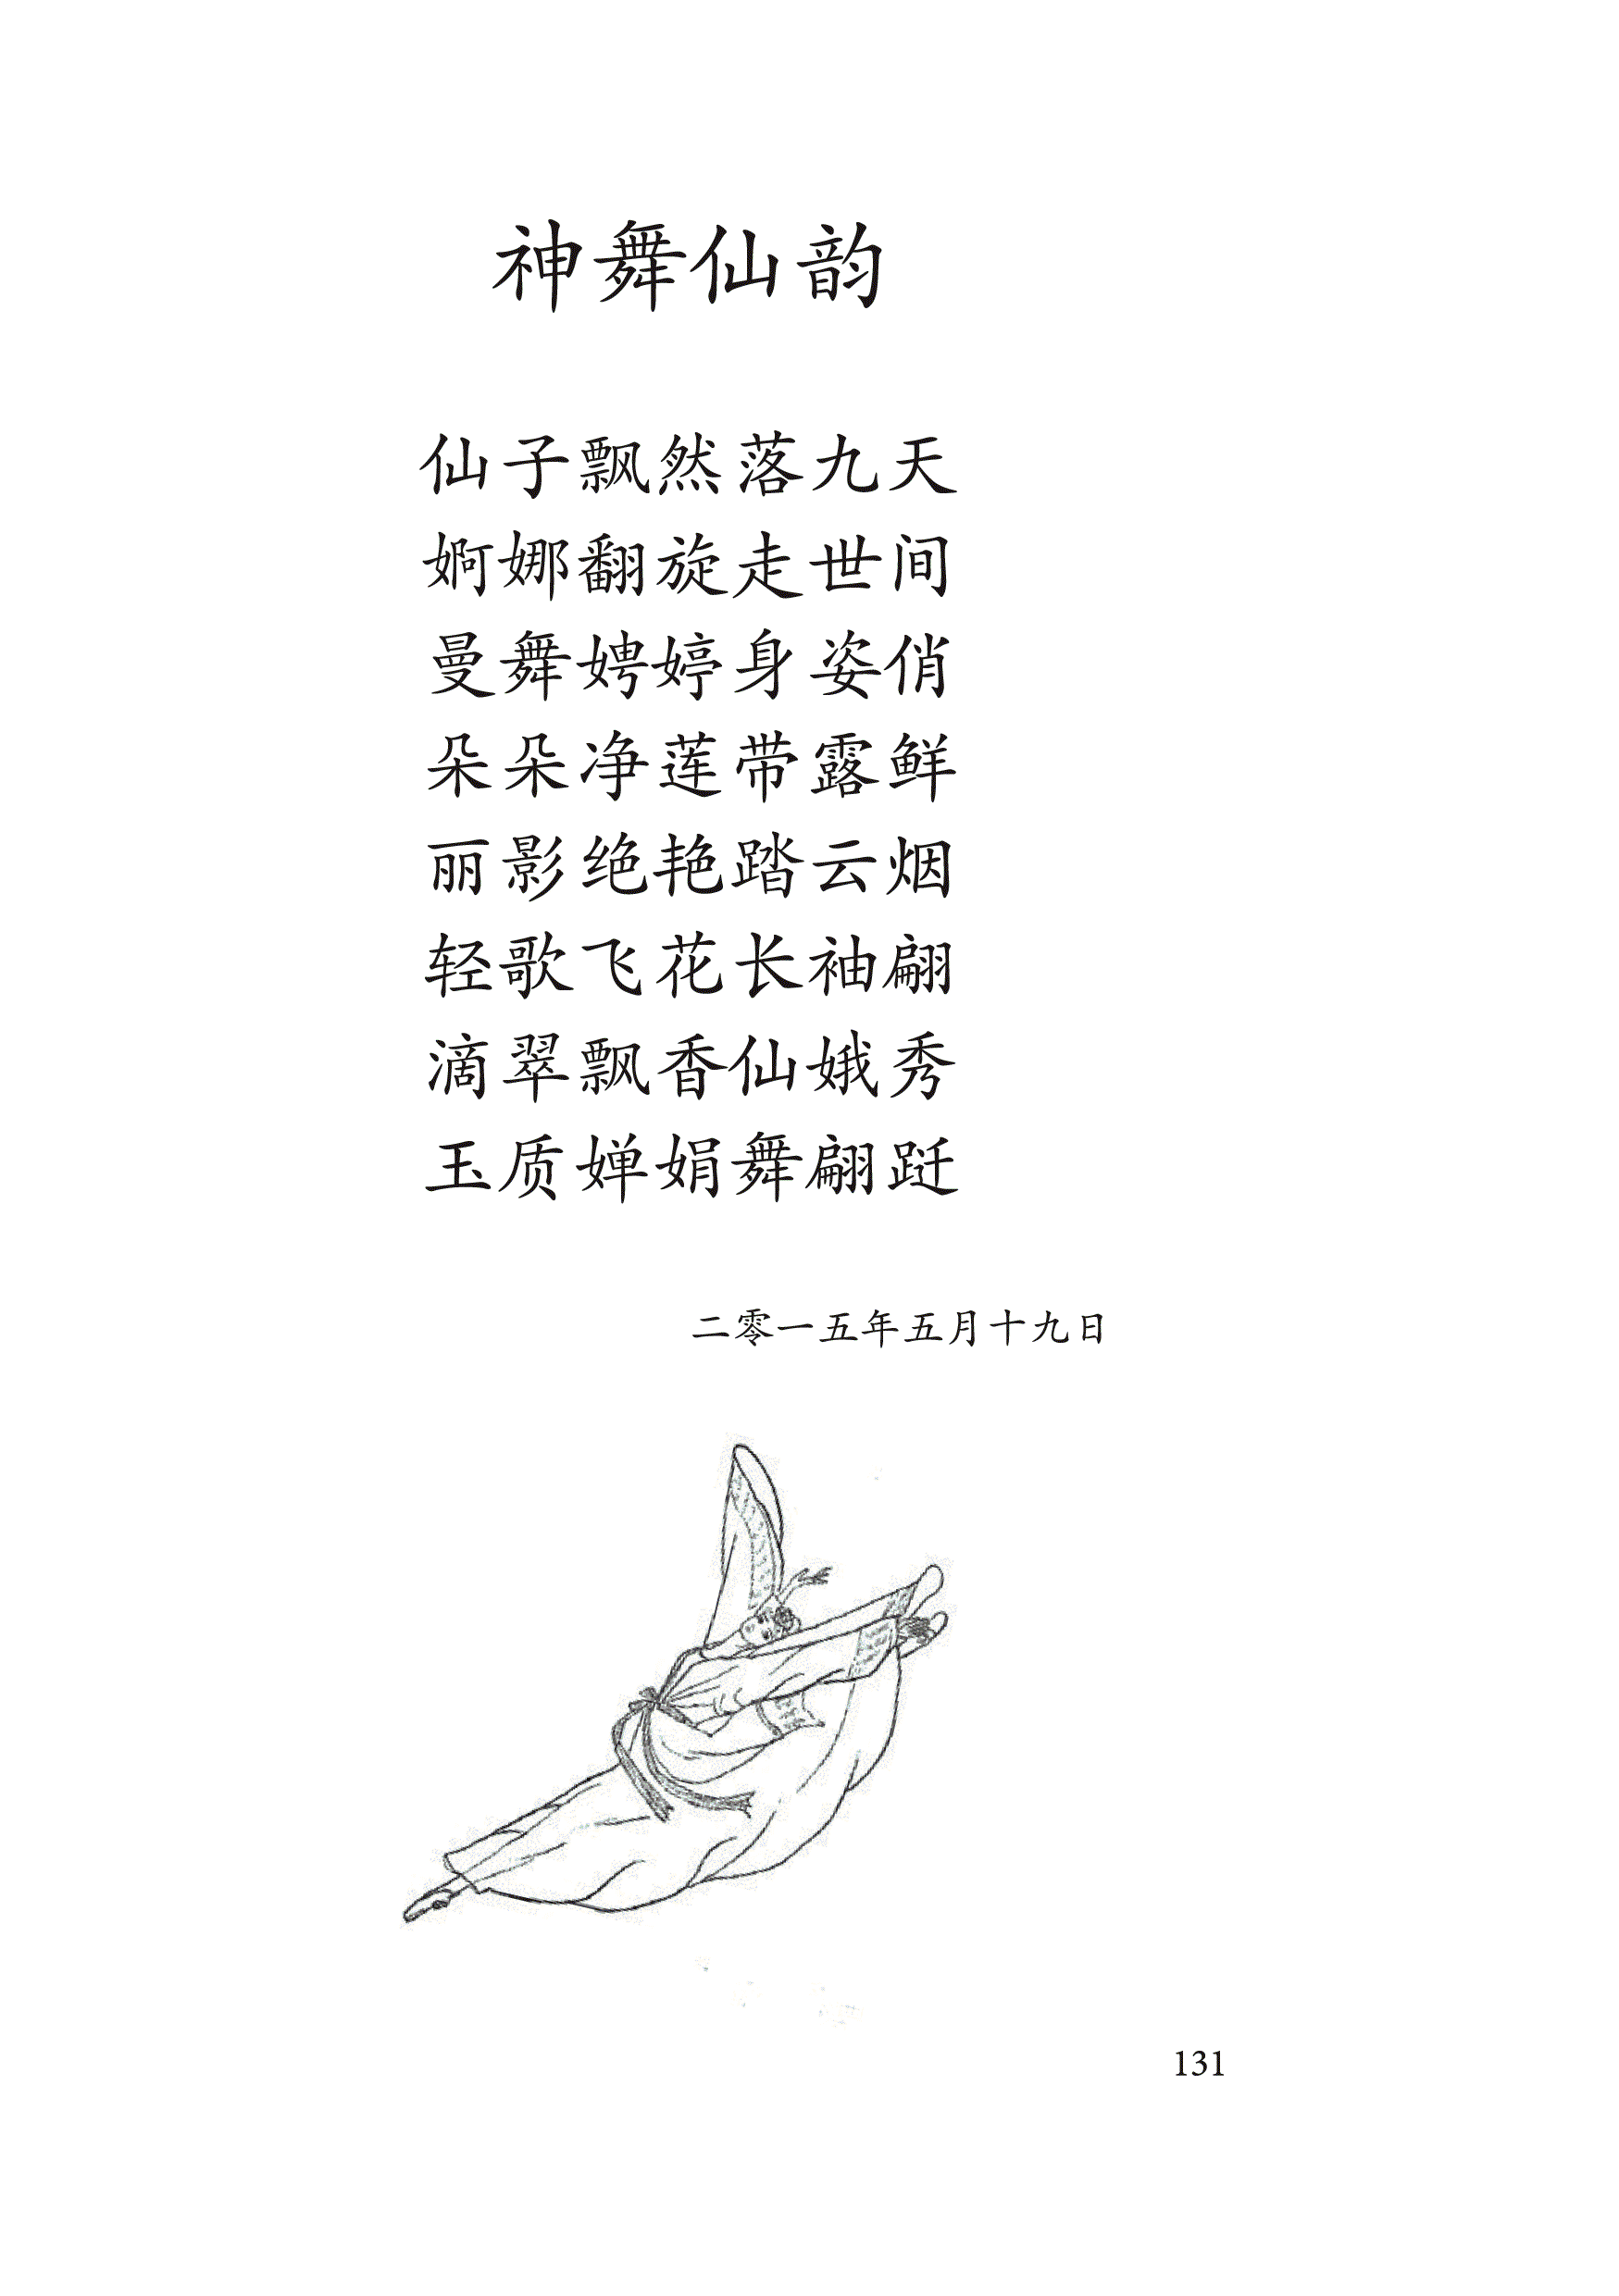 神舞仙韵
仙子飘然落九天
婀娜翻旋走世间
曼舞娉婷身姿俏
朵朵净莲带露鲜
丽影绝艳踏云烟
轻歌飞花长袖翩
滴翠飘香仙娥秀
玉质婵娟舞翩跹
二零一五年五月十九日
131